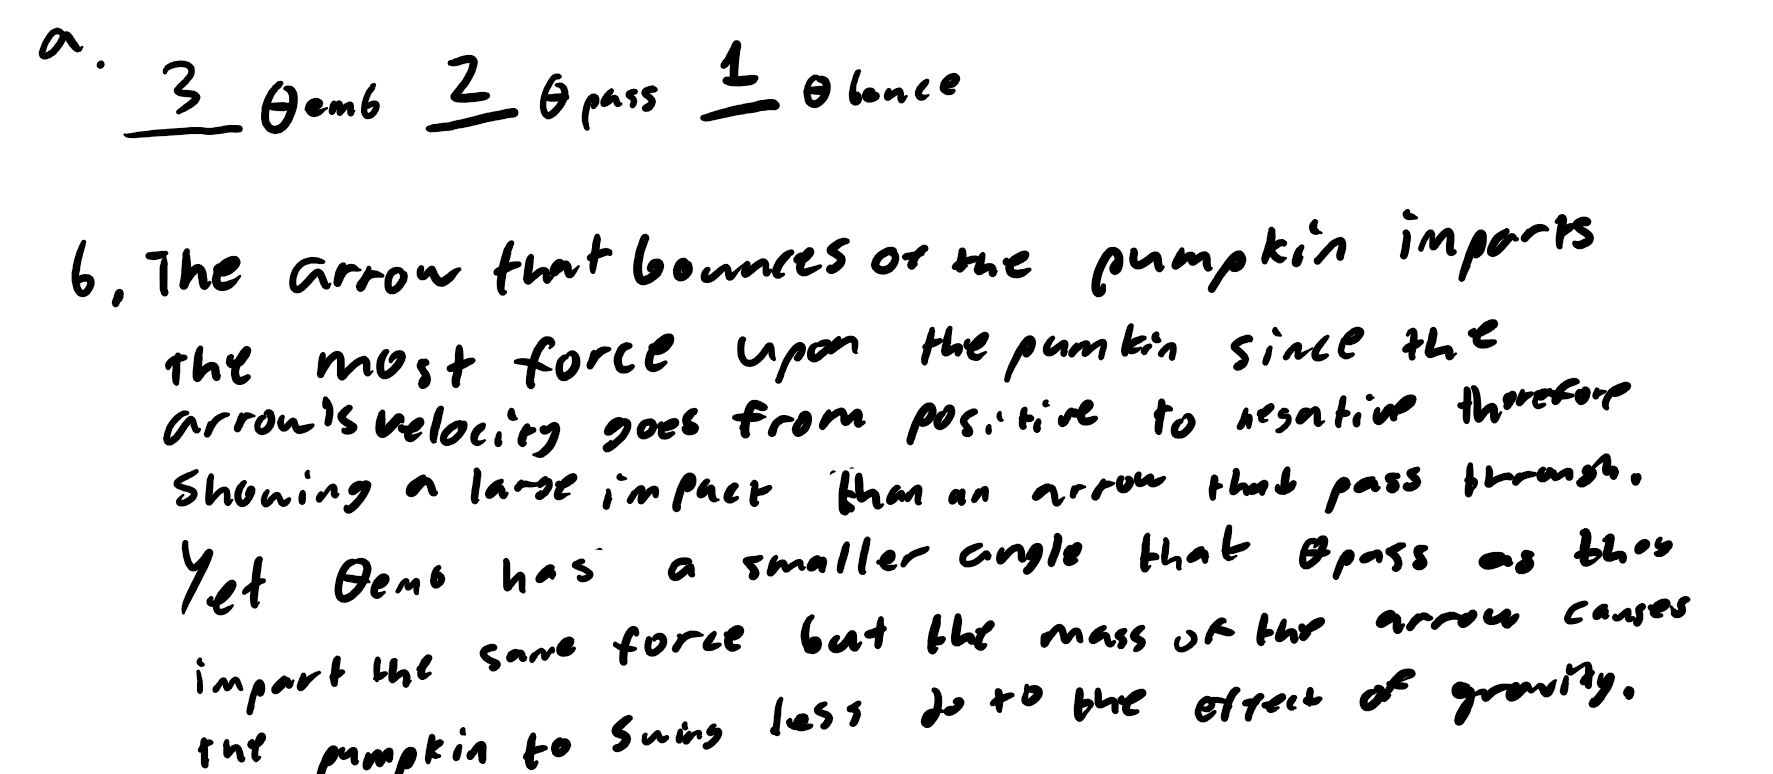 a. 3 θemb 2 θpass 1 θbounce
b, The arrow that bounces of the pumpkin imparts
the most force upon the pumkin since the
arrow's velocity goes from positive to negative therefore
showing a large impact than an arrow that pass through.
Yet θemb has a smaller angle that θpass as they
impart the same force but the mass of the arrow causes
the pumpkin to swing less do to the effect of gravity.